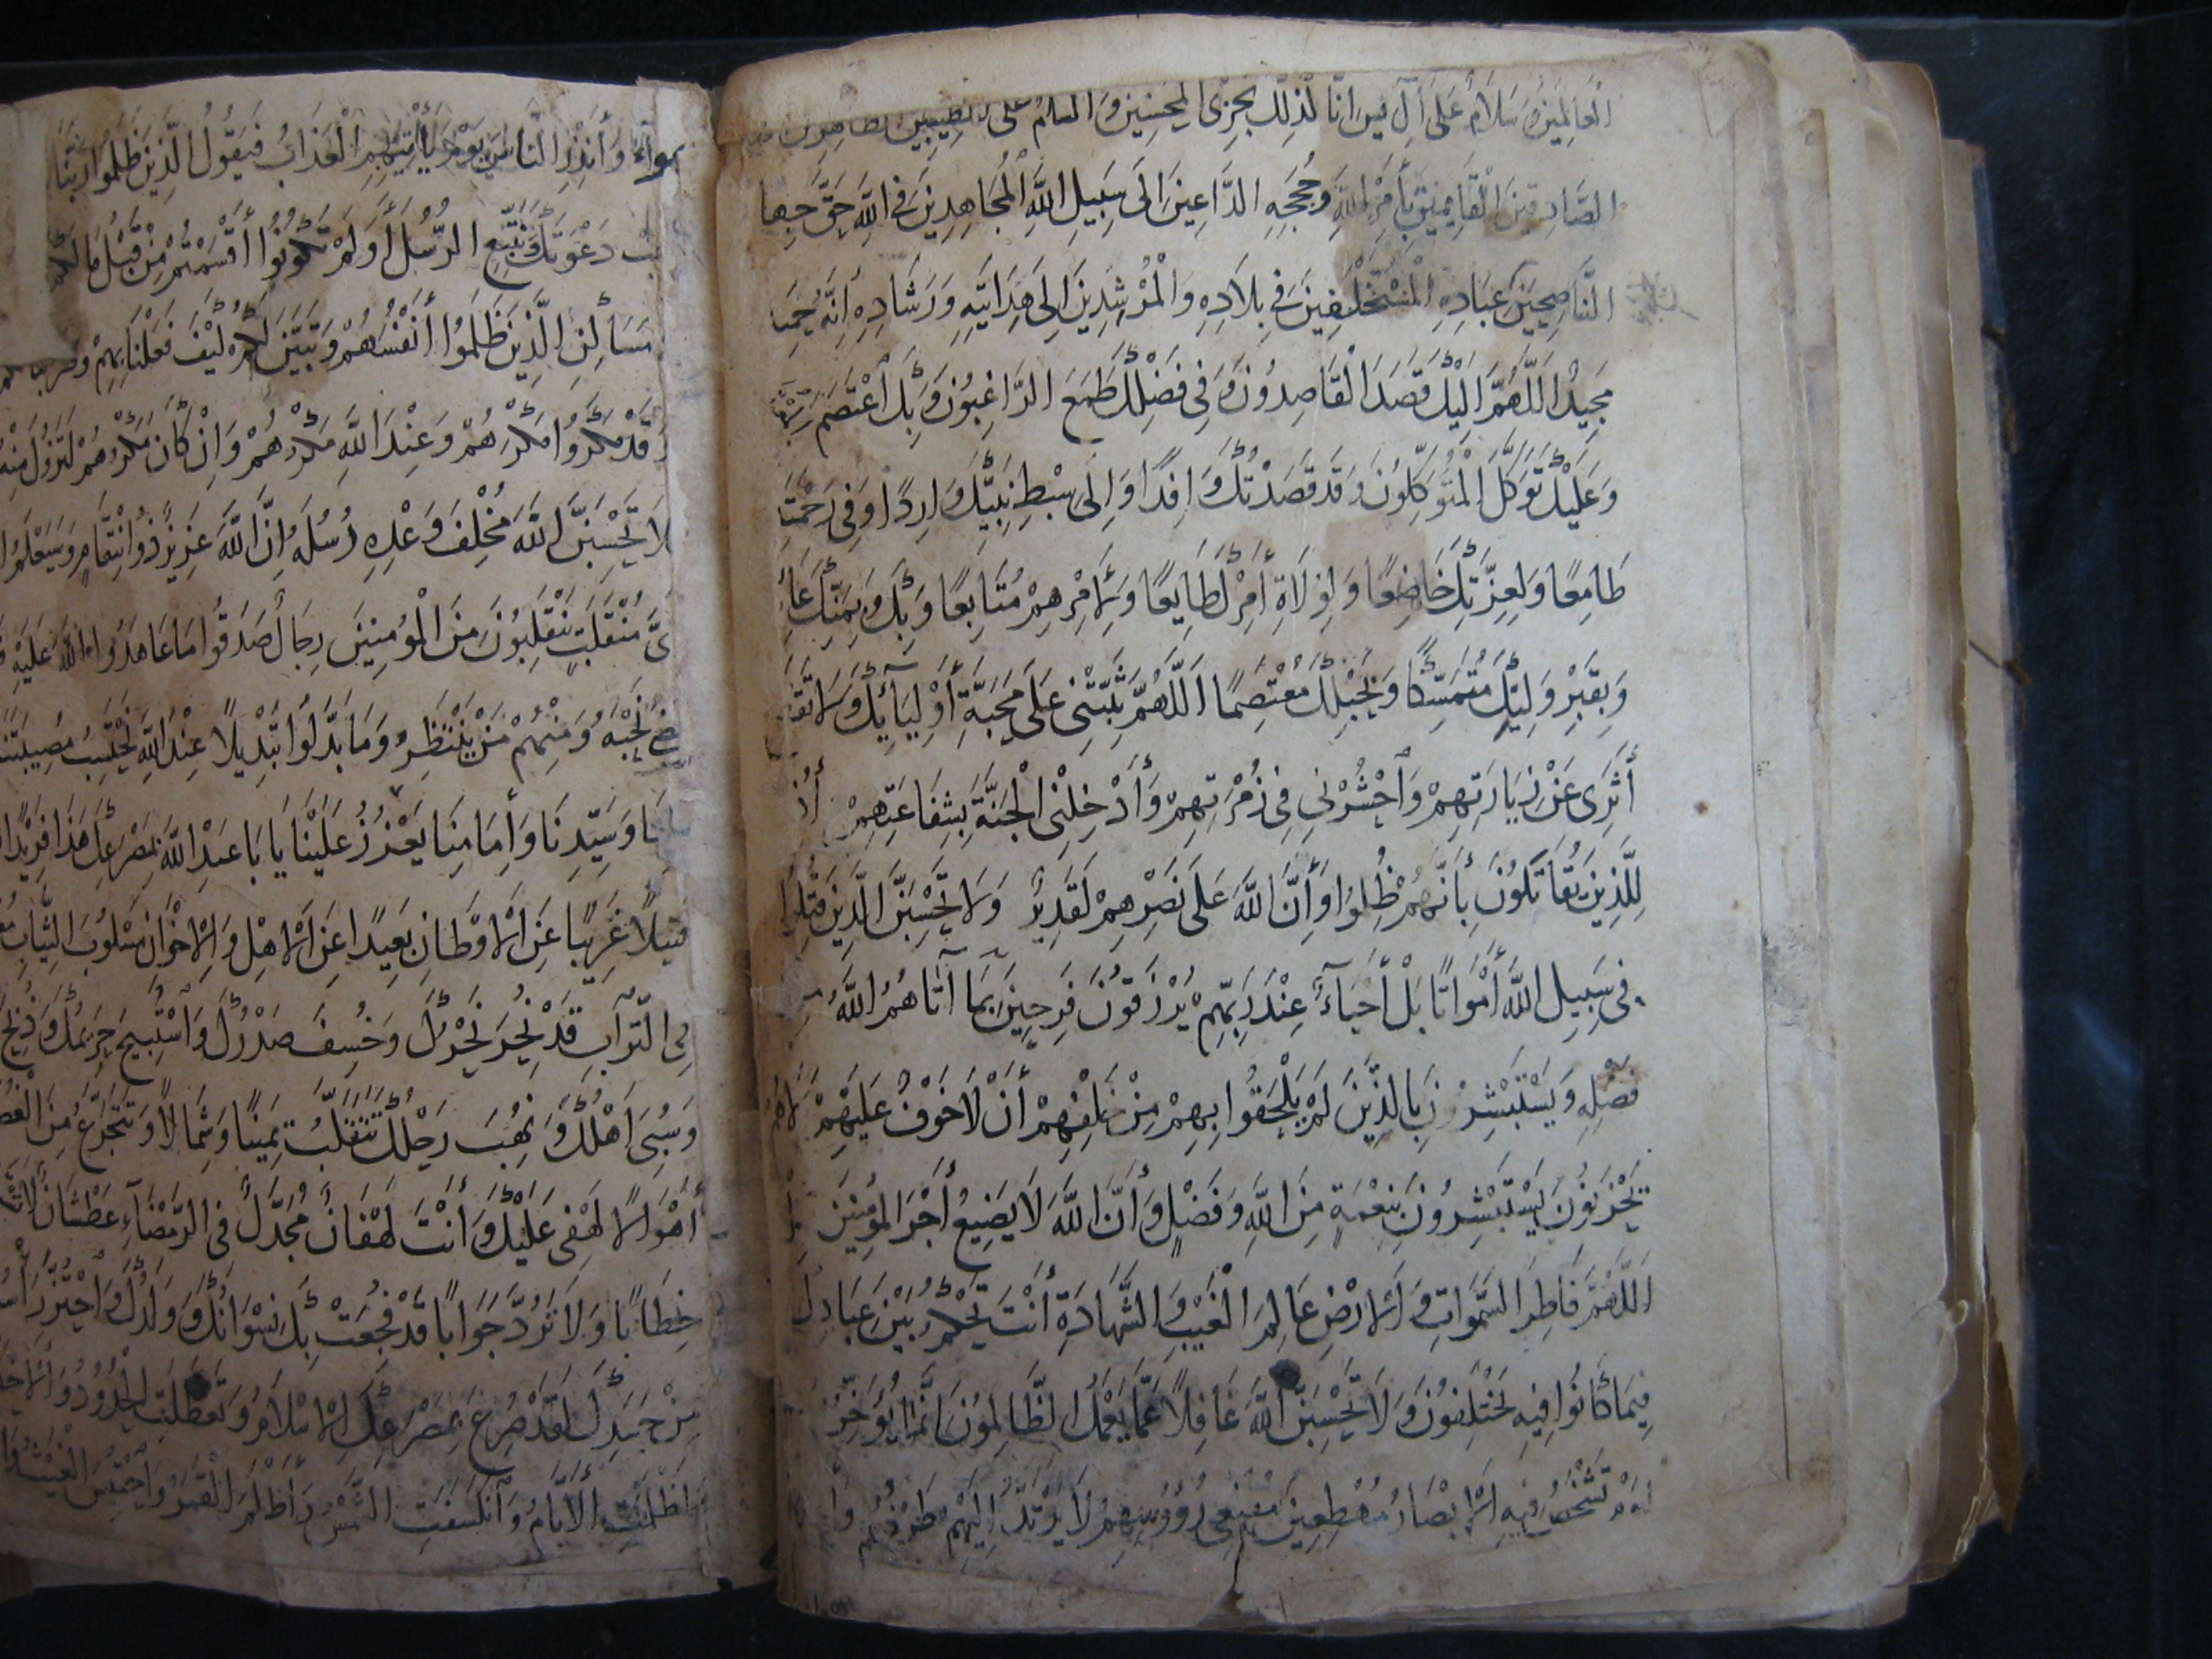 الْعَالَمِينَ وَسَلَامٌ عَلَى آلِ يس انَّا كَذَلِكَ نَجْزِي الْمُحْسِنِينَ وَالسلامُ عَلَى الطيِّبِينَ الطاهرين
الصَّادِقِينَ الْقَائِمِينَ بِأَمْرِ اللَّهِ وَحُجَجِهِ الدَّاعِينَ الَى سَبِيلِ اللَّهِ الْمُجَاهِدِينَ فِي اللَّهِ حَقَّ جِها
النَّاصِحِينَ عِبَادِهِ الْمُسْتَخْلَفِينَ فِي بِلَادِهِ وَالْمُرْشِدِينَ الِى هِدَايَتِهِ وَرَشَادِهِ إِنَّهُ حَمِيـ
مَجِيدٌ اَللَّهُمَّ اِلَيْكَ قَصَدَ الْقَاصِدُونَ وَفِي فَضْلِكَ طَمَعَ الرَّاغِبُونَ وَبِكَ اَعْتَصَمَ
وَعَلَيْكَ تَوَكَّلَ الْمُتَوَكِّلُونَ وَقَد قَصَدْتُكَ وَافِدًا وَإِلَى سِبْطِ نَبِيِّكَ وَارِدًا وَفِي رَحْمَتِـ
طَامِعًا وَلِعِزَّتِكَ خَاضِعًا وَلِوِلَاةِ أَمْرِكَ طَايِعًا وَلِأَمْرِهِمْ مُتَابِعًا وَبِكَ وَبِمَنِّكَ عَائِـ
وَبِقَبْرِ وَلِيِّكَ مُتَمَسِّكًا وَبِحَبْلِكَ مُعْتَصِمًا اَللَّهُمَّ ثَبِّتْنِي عَلَى مَحَبَّةِ أَوْلِيَآئِكَ وَلَا تَقْـ
أَثَرِي عَنْ زِيَارَتِهِمْ وَاَحْشُرْنِي فِي زُمْرَتِهِمْ وَأَدْخِلْنِي الْجَنَّةَ بِشَفَاعَتِهِمْ أُذ
لِلَّذِينَ يُقَاتَلُونَ بِأَنَّهُمْ ظُلِمُوا وَأَنَّ اللَّهَ عَلَى نَصْرِهِمْ لَقَدِيرٌ وَلَا تَحْسَبَنَّ الَّذِينَ قُتِلُوا
فِي سَبِيلِ اللَّهِ أَمْوَاتًا بَلْ أَحْيَآءٌ عِنْدَ رَبِّهِمْ يُرْزَقُونَ فَرِحِينَ بِمَا آتَاهُمُ اللَّهُ
فَضْلِهِ وَيَسْتَبْشِرُونَ بِالَّذِينَ لَمْ يَلْحَقُوا بِهِمْ مِنْ خَلْفِهِمْ أَنْ لَا خَوْفٌ عَلَيْهِمْ وَلَا هُمْ
يَحْزَنُونَ يَسْتَبْشِرُونَ بِنِعْمَةٍ مِنَ اللَّهِ وَفَضْلٍ وَأَنَّ اللَّهَ لَا يُضِيعُ أَجْرَ الْمُؤمِنِينَ
اَللَّهُمَّ فَاطِرَ السَّمَوَاتِ وَالْأَرْضِ عَالِمَ الْغَيْبِ وَالشَّهَادَةِ أَنْتَ تَحْكُمُ بَيْنَ عِبَادِكَ
فِيمَا كَانُوا فِيهِ يَخْتَلِفُونَ وَلَا تَحْسَبَنَّ اللَّهَ غَافِلًا عَمَّا يَعْمَلُ الظَّالِمُونَ إِنَّمَا يُؤَخِّرُ
لِيَوْمٍ تَشْخَصُ فِيهِ الْأَبْصَارُ مُهْطِعِينَ مُقْنِعِي رُؤُوسِهِمْ لَا يَرْتَدُّ إِلَيْهِمْ طَرْفُهُمْ وَأَ
هَوآءٌ وَأَنْذِرِ النَّاسَ يَوْمَ يَأْتِيهِمُ الْعَذَابُ فَيَقُولُ الَّذِينَ ظَلَمُوا رَبَّنَا
دَعْوَتَكَ وَنَتَّبِعِ الرُّسُلَ أَوَلَمْ تَكُونُوا أَقْسَمْتُمْ مِنْ قَبْلُ مَا لَكُمْ
مَسَاكِنِ الَّذِينَ ظَلَمُوا أَنْفُسَهُمْ وَتَبَيَّنَ لَكُمْ كَيْفَ فَعَلْنَا بِهِمْ وَضَرَبْنَا لَكُمُ
وَقَدْ مَكَرُوا مَكْرَهُمْ وَعِنْدَ اللَّهِ مَكْرُهُمْ وَاِنْ كَانَ مَكْرُهُمْ لِتَزُولَ مِنْهُ
لَا تَحْسَبَنَّ اللَّهَ مُخْلِفَ وَعْدِهِ رُسُلَهُ إِنَّ اللَّهَ عَزِيزٌ ذُو انْتِقَامٍ وَسَيَعْلَمُ ا
يَّ مُنْقَلَبٍ يَنْقَلِبُونَ مِنَ الْمُؤمِنِينَ رِجَالٌ صَدَقُوا مَا عَاهَدُوا اللَّهَ عَلَيْهِ
قَضَى نَحْبَهُ وَمِنْهُمْ مَنْ يَنْتَظِرُ وَمَا بَدَّلُوا تَبْدِيلًا عِنْدَ اللَّهِ نَحْتَسِبُ مُصِيبَتَنَا
وَسَيِّدِنَا وَإِمَامِنَا يَعْزُزُ عَلَيْنَا يَا بَا عَبْدِ اللَّهِ مَصْرَعُكَ هَذَا فَرِيْدًا
قَتِيلًا غَرِيبًا عَنِ الْأَوْطَانِ بَعِيدًا عَنِ الْأَهْلِ وَالْإِخْوَانِ مَسْلُوبَ الثِّيَابِ مُعَـ
فِي التُّرَابِ قَدْ نُحِرَ نَحْرُكَ وَخُسِفَ صَدْرُكَ وَاسْتُبِيحَ حَرِيمُكَ وَذُبِحَ
وَسُبِيَ اَهْلُكَ وَنُهِبَ رَحْلُكَ تَتَقَلَّبُ يَمِينًا وَشِمَالًا وَتَتَجَرَّعُ مِنَ الْغُصَـ
أَهْوَالًا لَهْفِي عَلَيْكَ وَأَنْتَ لَهْفَانُ مُجَدَّلٌ فِي الرَّمْضَآءِ عَطْشَانُ لَا تَـ
خِطَابًا وَلَا تَرُدُّ جَوَابًا قَدْ فُجِعَتْ بِكَ نِسْوَانُكَ وَوَلَدُكَ وَاحْتُزَّ رَأْسُـ
مِنْ جَسَدِكَ لَقَدْ صُرِعَ بِمَصْرَعِكَ الْإِسْلَامُ وَتَعَطَّلَتِ الْحُدُودُ وَالْأَحْـ
وَاظْلَمَتِ الْأَيَّامُ وَانْكَسَفَتِ الشَّمْسُ وَأَظْلَمَ الْقَمَرُ وَاحْتُبِسَ الْغَيْثُ وَا